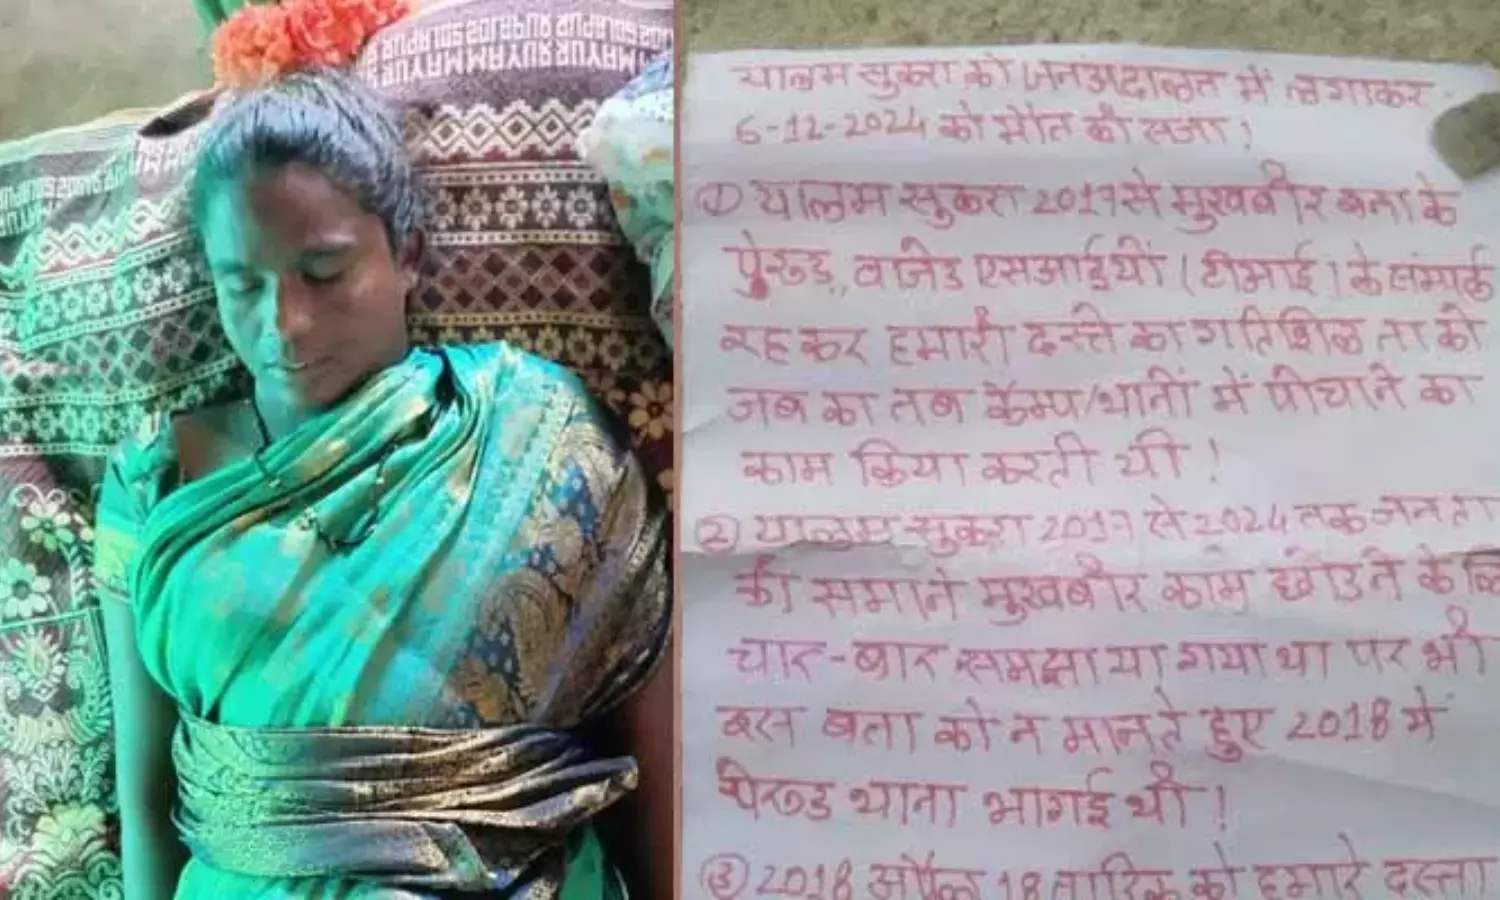 MAYUR SOLAPUR
यालम सुकरा को जनअदालत में लगाकर
6-12-2024 को मौत की सजा!
① यालम सुकरा 2017 से मुखबीर बता के
पेरुड, वाजेड एसआईयों (टीमाई) के संम्पर्क
रह कर हमारी दस्ते का गतिशिल ता को
जब का तब कॅम्प/थानों में पीचाने का
काम किया करती थी!
② यालम सुकरा 2017 से 2024 तक जनता
की समाने मुखबीर काम छोडने के लि
चार-बार समझाया गया था पर भी
इस बता को न मानते हुए 2018 में
पेरुड थाना भागई थी!
③ 2018 अप्रैल 18 तारिक को हमारे दस्ता